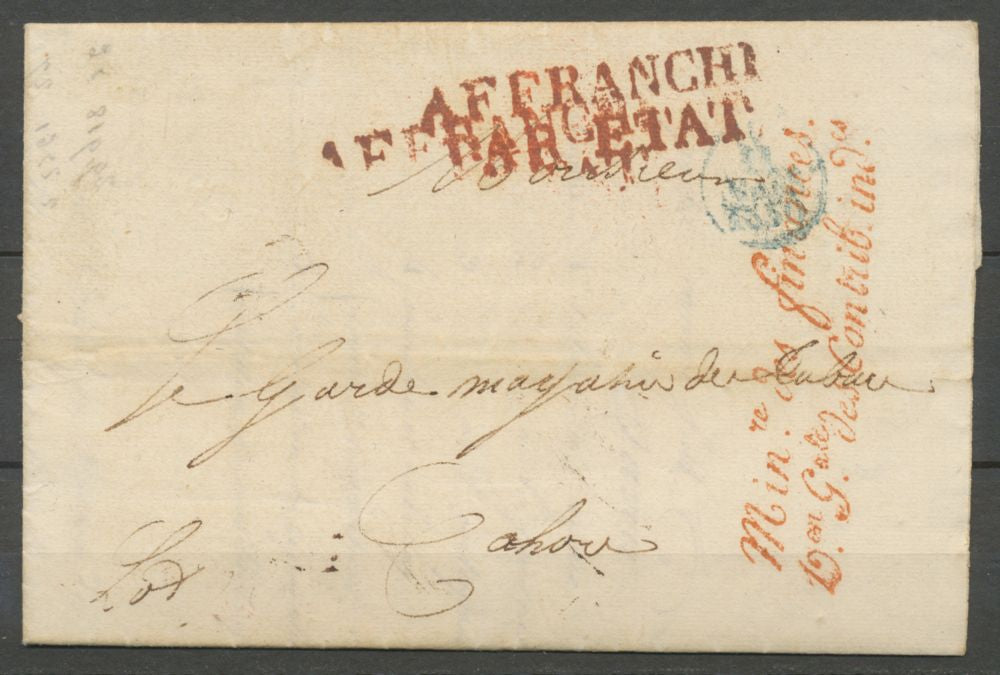 AFFRANCHI
PAR ETAT
AFFRANCHI
Monsieur
Le Garde magasin des Tabacs
Cahors
Lot
Min.re des finances.
D.on G.ale des Contrib. ind.es